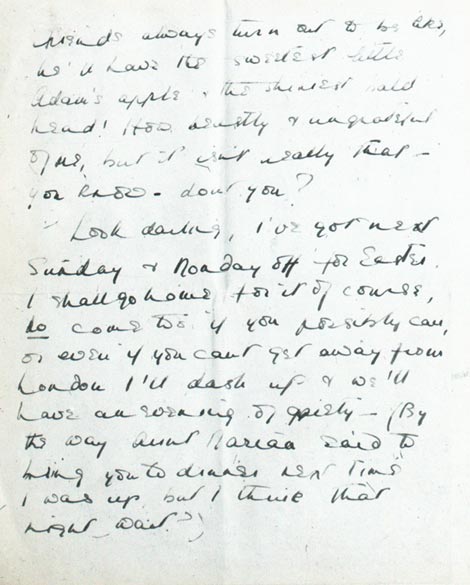 friends always turn out to be like,
he'll have the sweetest little
Adam's apple & the shiniest bald
head! How beastly & ungrateful
of me, but it isn't really that —
you know — don't you?
Look darling, I've got next
Sunday & Monday off for Easter.
I shall go home for it of course,
do come too if you possibly can,
or even if you cant get away from
London I'll dash up & we'll
have an evening of gaiety — (By
the way Aunt Marian said to
bring you to dinner next time
I was up but I think that
might wait?)